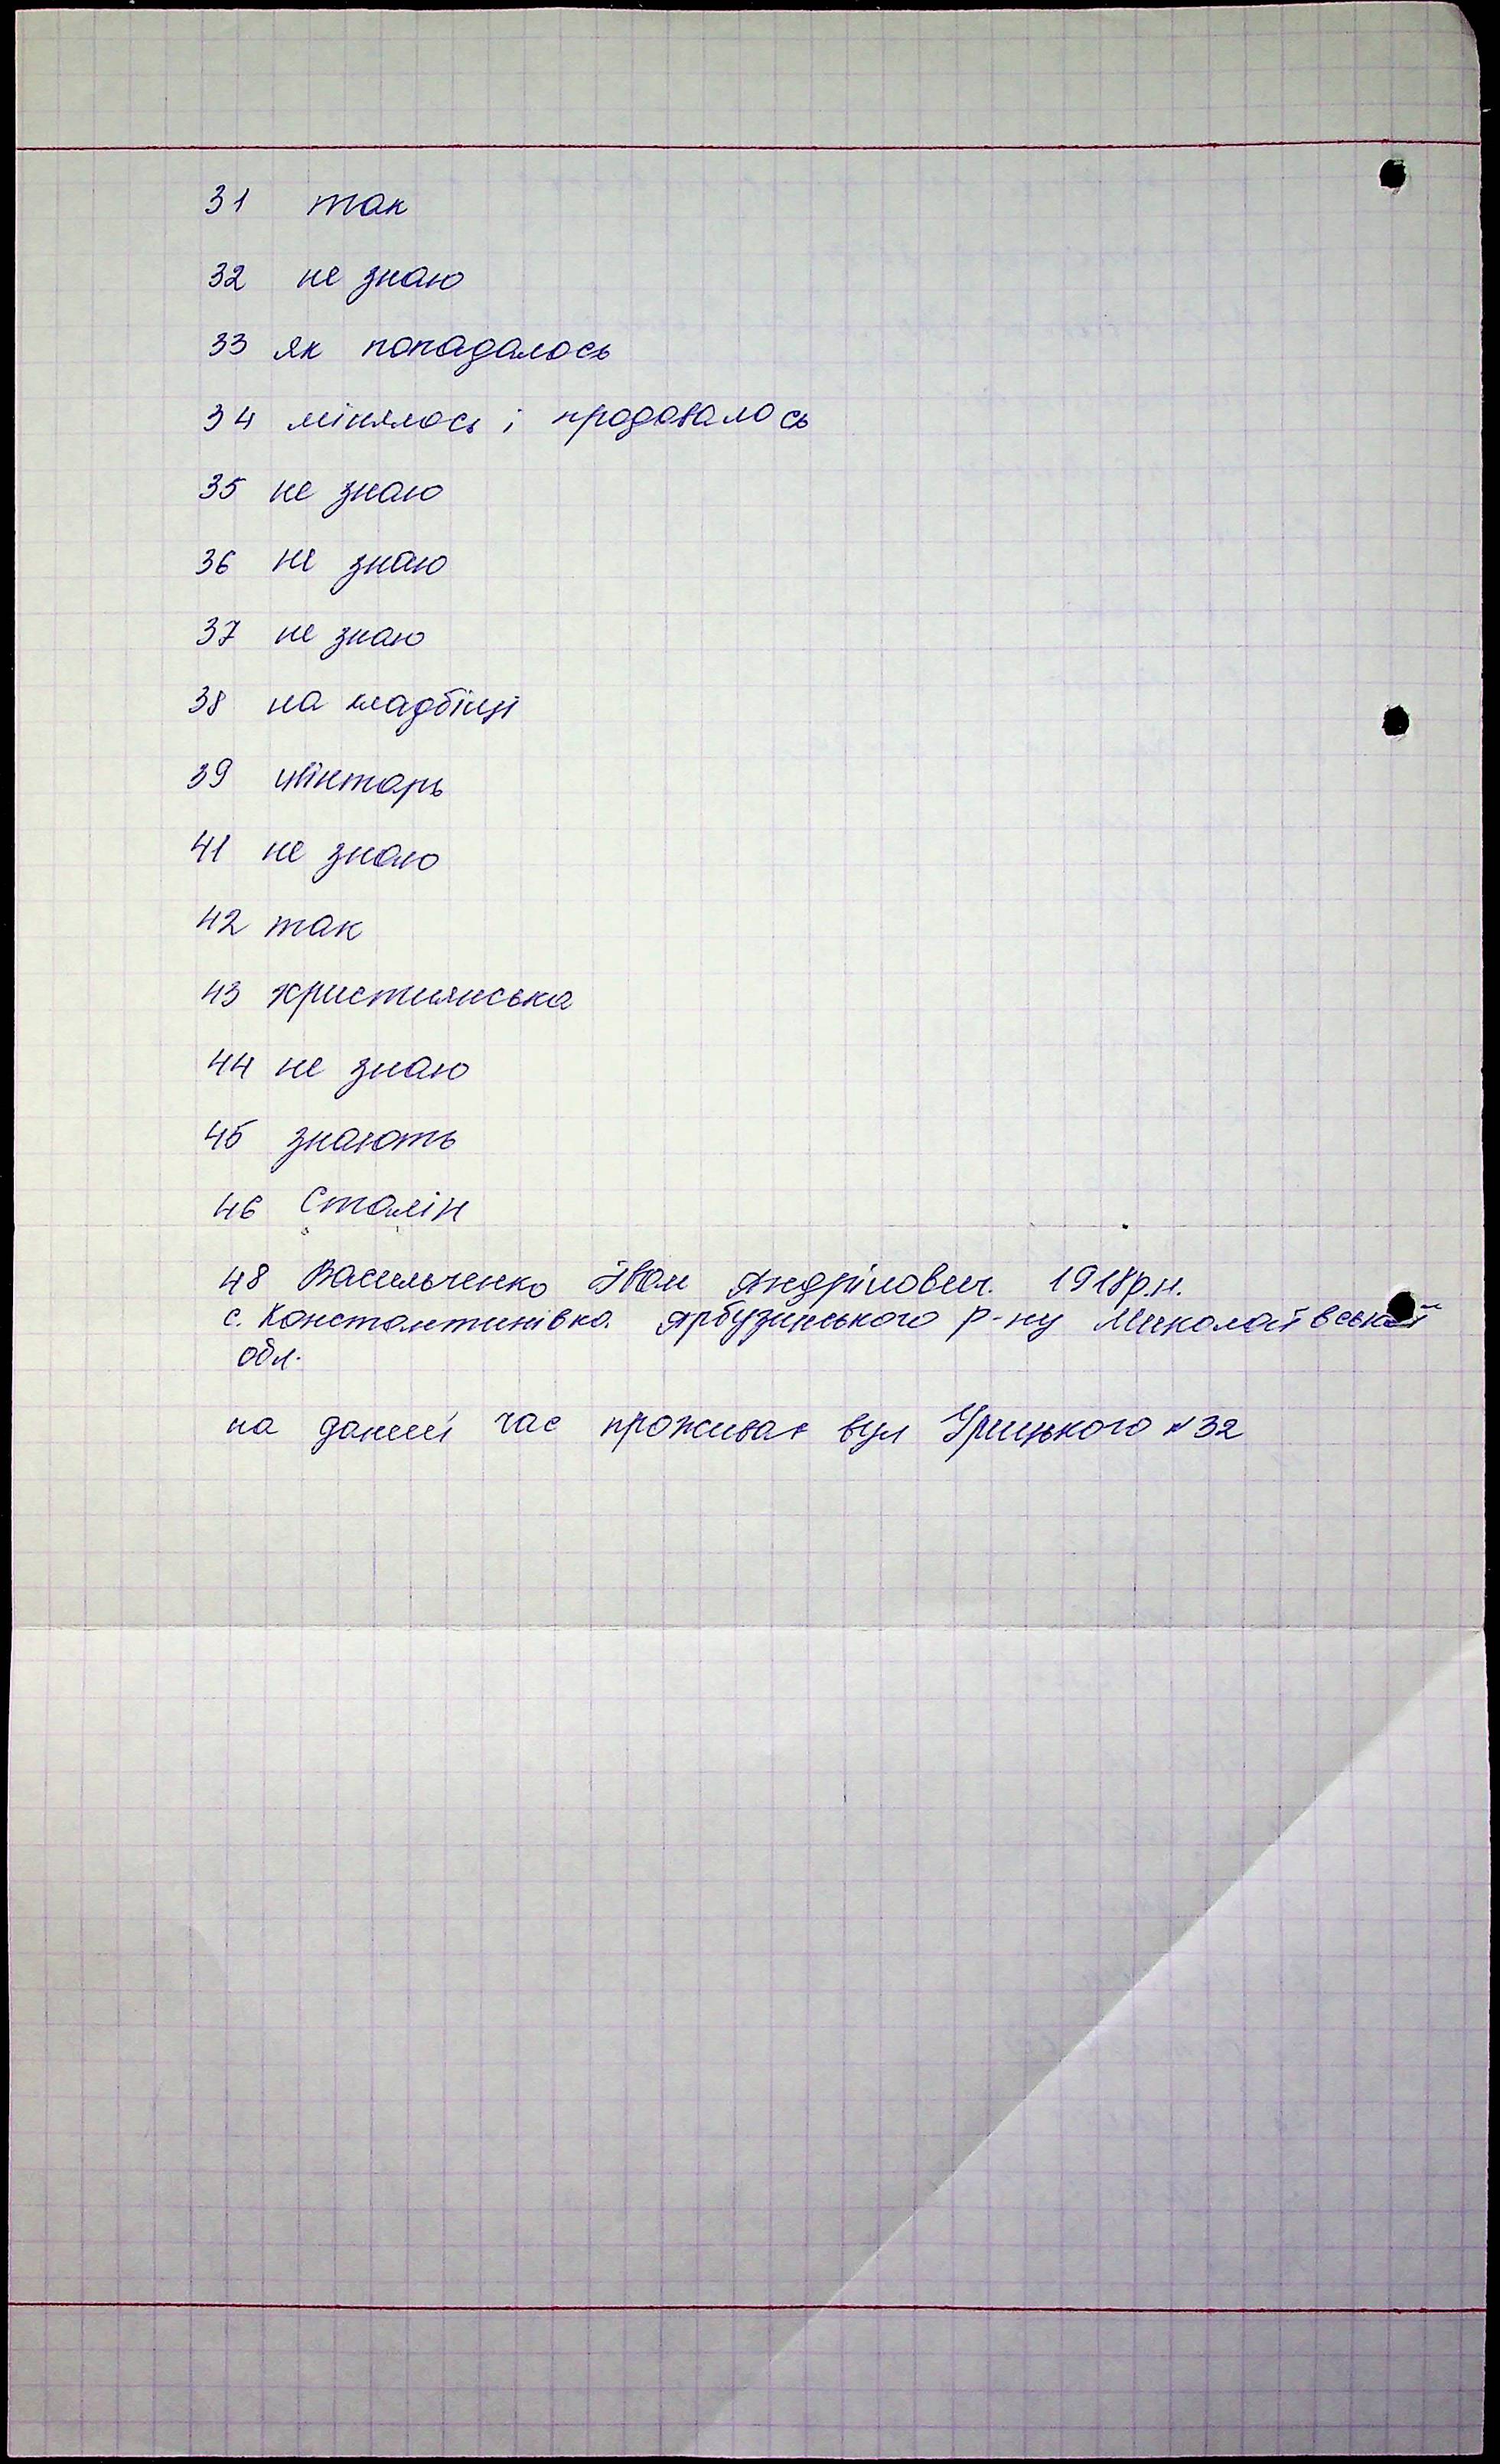 31 так
32 не знаю
33 як попадалось
34 мінялось і продавалось
35 не знаю
36 не знаю
37 не знаю
38 на кладбіщі
39 цвінтарь
41 не знаю
42 так
43 християнська
44 не знаю
45 знають
46 Сталін
48 Васильченко Іван Андрійович. 1918р.н.
с. Константинівка. Арбузинського р-ну Миколаївської
обл.
на даний час проживає вул Урицького №32